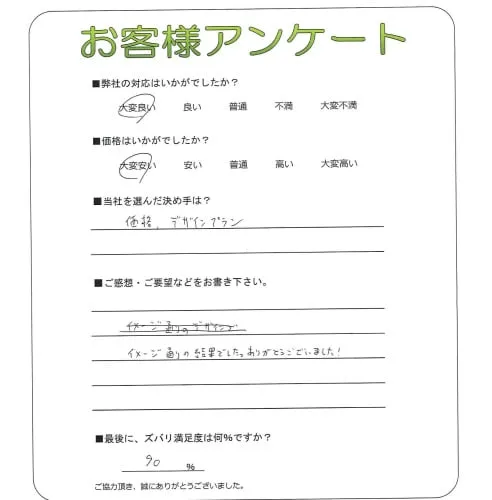 お客様アンケート
■弊社の対応はいかがでしたか？
大変良い 良い 普通 不満 大変不満
■価格はいかがでしたか？
大変安い 安い 普通 高い 大変高い
■当社を選んだ決め手は？
価格、デザインプラン
■ご感想・ご要望などをお書き下さい。
イメージ通りのデザインで
イメージ通りの結果でした。ありがとうございました！
■最後に、ズバリ満足度は何％ですか？
90 ％
ご協力頂き、誠にありがとうございました。